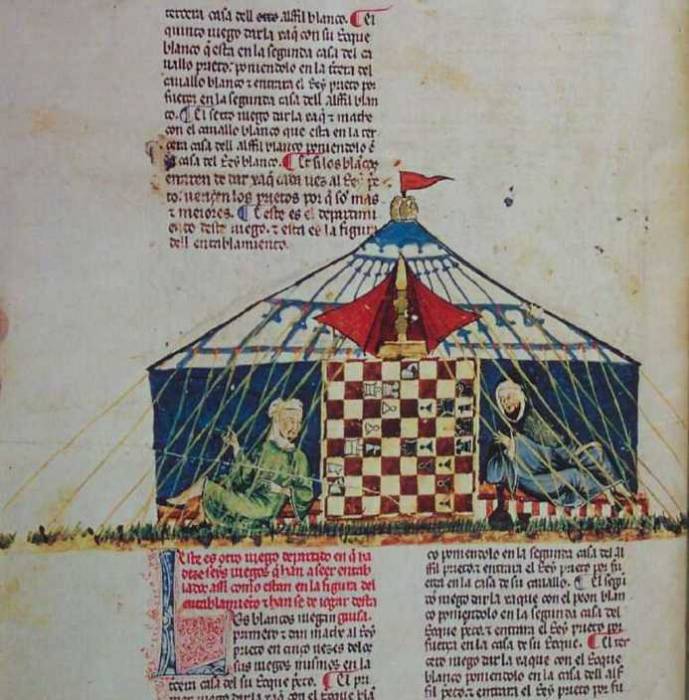 tercera casa dell alffil blanco. El
quinto iuego dar la xaq̃ con su Roque
blanco q̃ esta en la segunda casa del ca
uallo prieto; poniendolo en la t̃cera del
cauallo blanco ⁊ entrara el Rey prieto por
fuerça en la segunda casa dell alffil blan
co. El sesto iuego dar la xaq̃ ⁊ mathe
con el cauallo blanco que esta en la ter
cera casa dell alffil blanco poniendolo ẽ
casa del Rey blanco. Et si los blãcos
de dar xaq̃ cada uez al Rey p̃e
to; los prietos por q̃ so mas
⁊ meiores. E este es el departimi
ento deste iuego. ⁊ esta es la figura
dell entablamiento.
Este es otro iuego departido en q̃ ha
seys iuegos q̃ han a seer entab
lados assi como estan en la figura del
entablamiẽto ⁊ han se de iogar desta
Los blancos iuegan guisa.
primero ⁊ dan mathe al Rey
prieto en cinco uezes delos
sus iuegos mismos en la
tercera casa del su Roque p̃eto. El pri
mero dar la xaq̃ con el Roque blã
co poniendolo en la segunda casa del al
ffil prieto; ⁊ entrara el Rey prieto por fu
erça en la casa de su cauallo. El segũ
do iuego dar la xaque con el peon blan
co poniendolo en la segunda casa del
Roque p̃eto. ⁊ entrara el Rey prieto por
fuerça en la casa de su Roque. El ter
cero iuego dar la xaque con el Roque
blanco poniendolo en la casa dell alf
fil p̃eto. ⁊ entrara el Rey prieto por fu